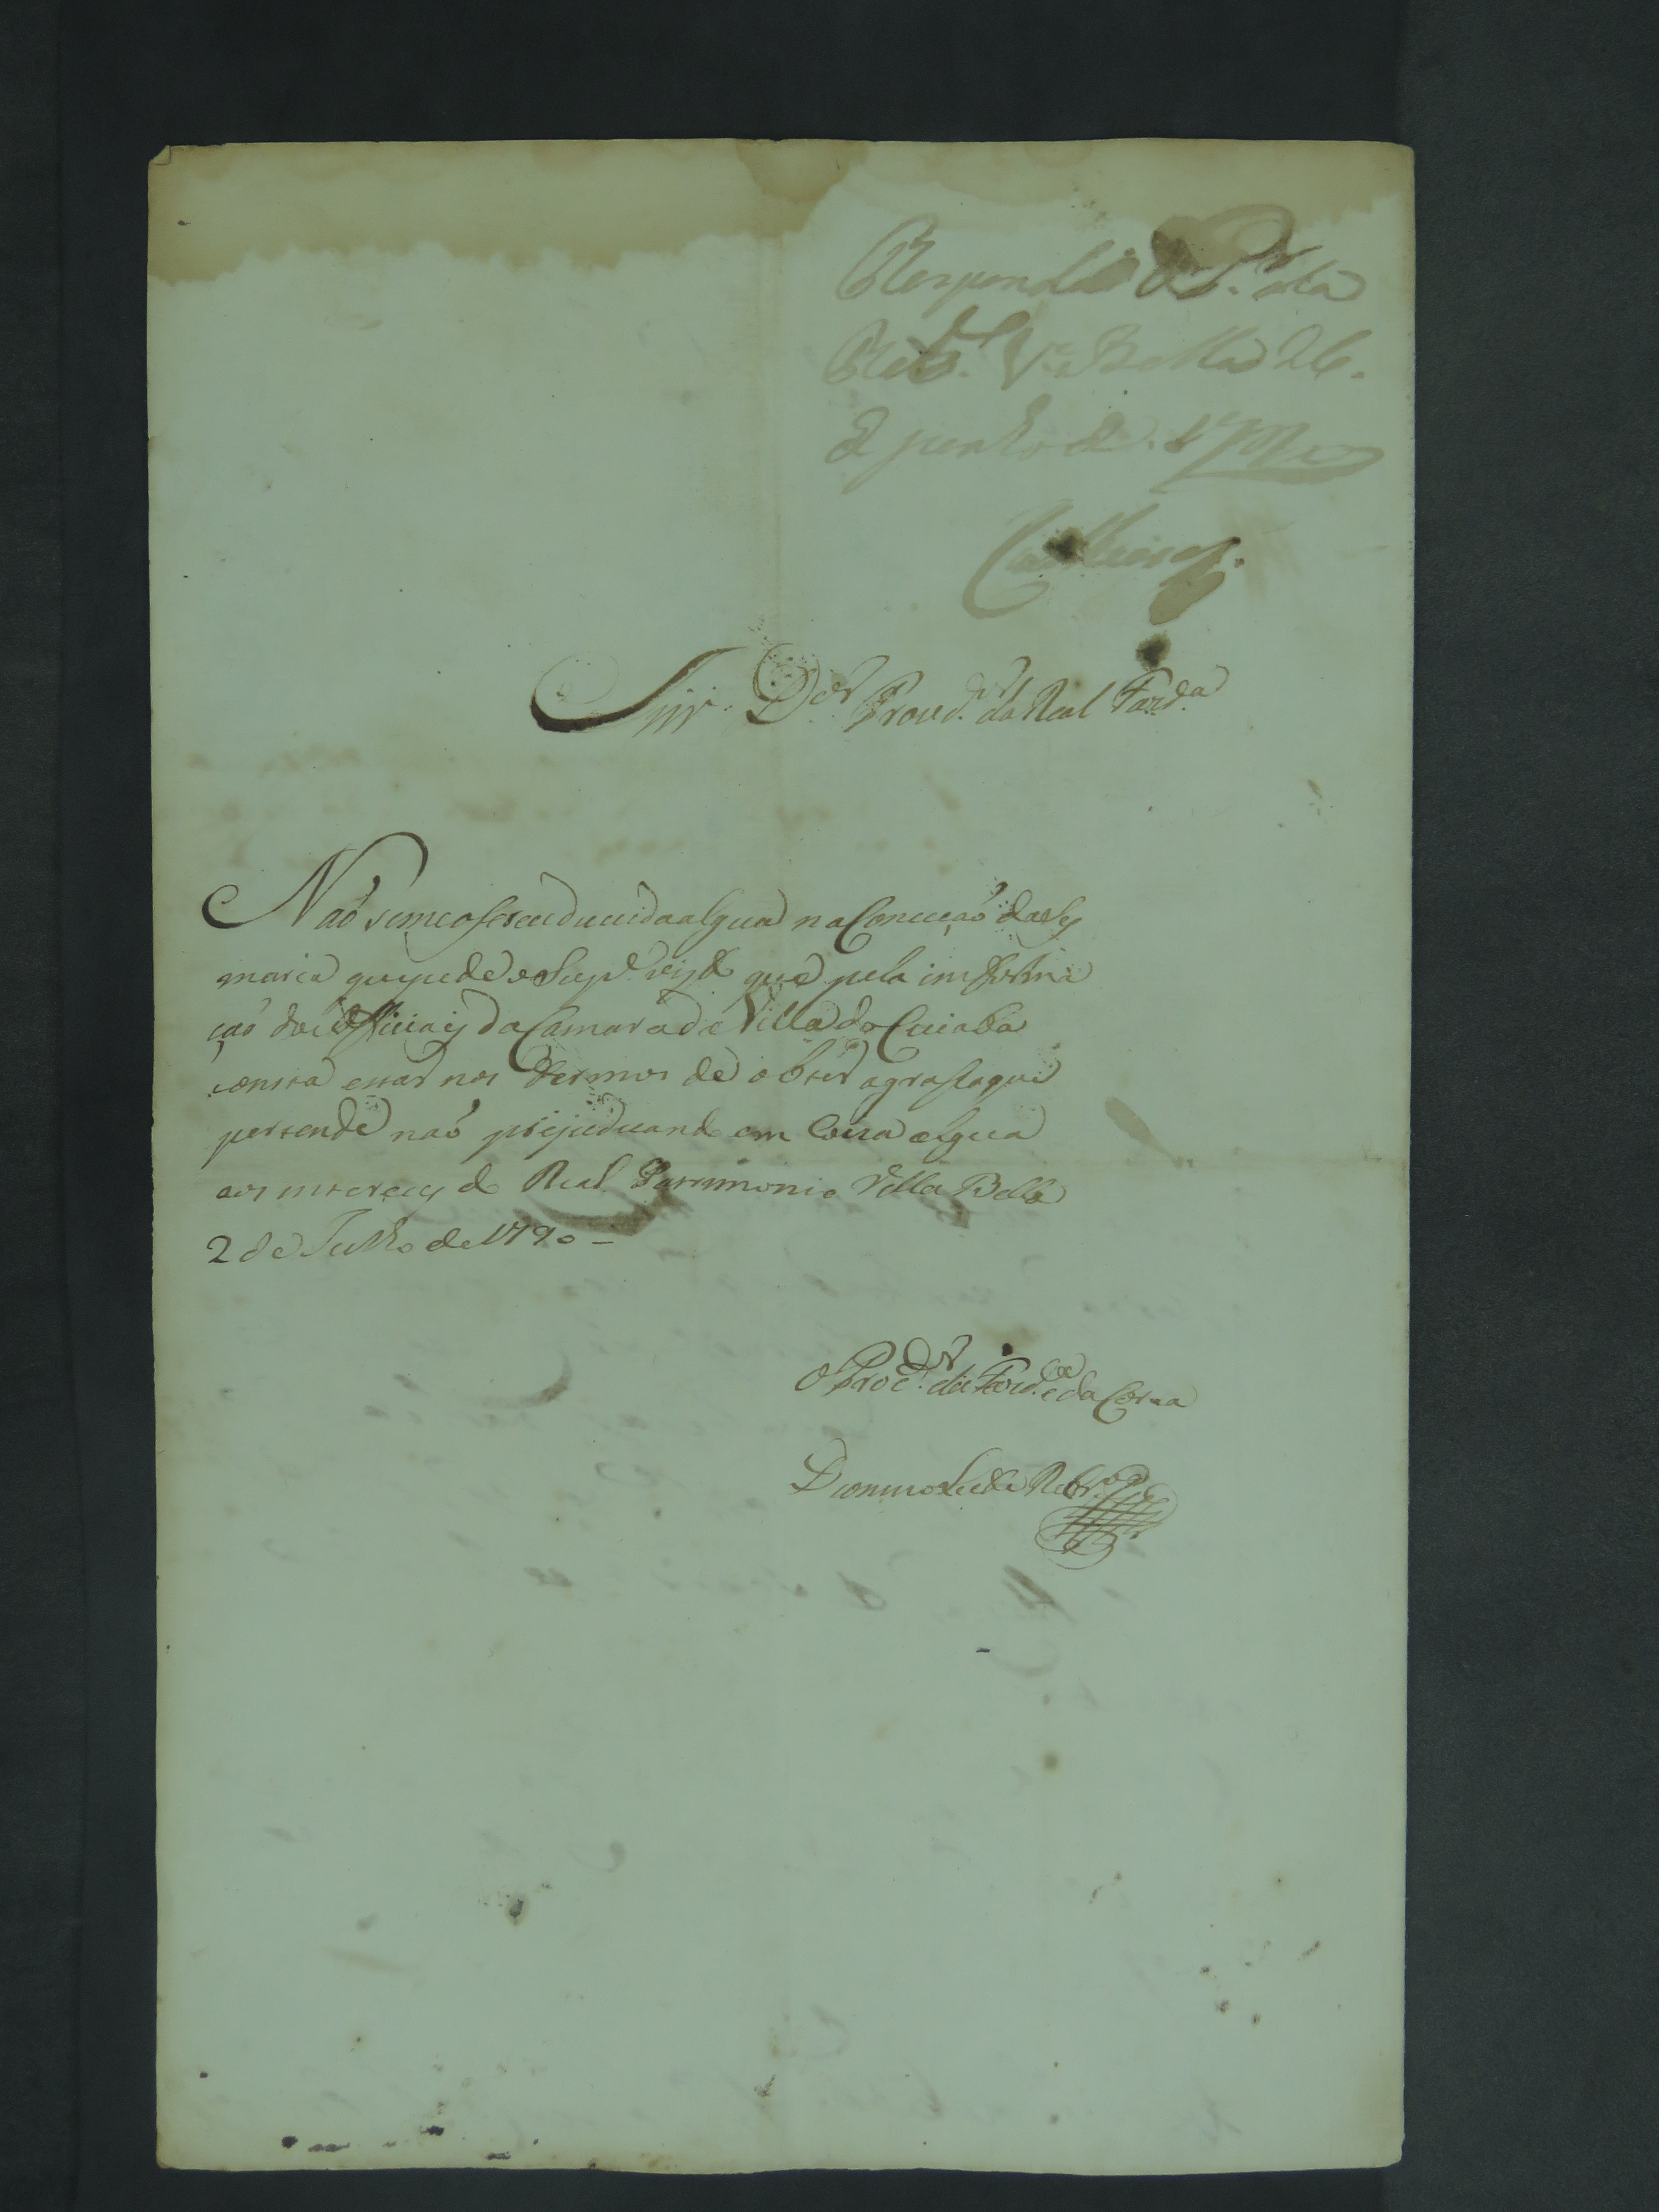 Responda o P.or da
Real V.a Bella 26.
de junho de 1790
Snr. D.or Provd.or da Real Fazd.a
Naõ seme oferece duvida algua na Conceçaõ da Ses
maria que pede o Sup.e visto que pela informa
çaõ dos Officiaes da Camara da Villa do Cuiaba
consta estar nos termos de obter a grasa que
pertende naõ prejudicando em Coisa algua
aos intereces do Real Patrimonio Villa Bella
2 de Julho de 1790 –
O Proc.dor da Fazd.a e da Coroa